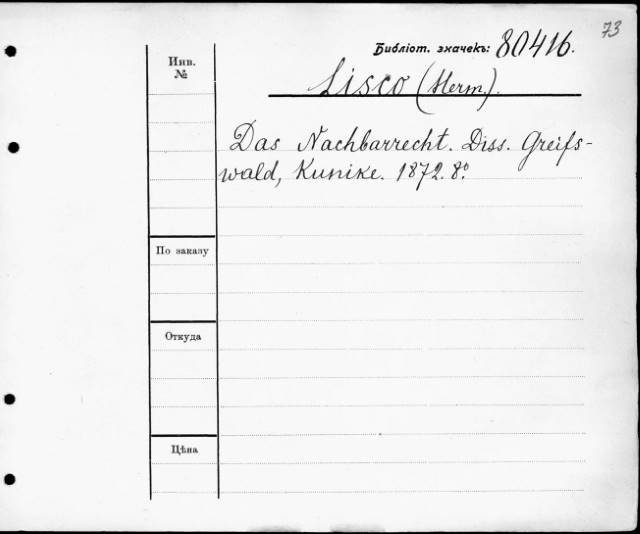 73
Библіот. значекъ: 80416.
Инв.
№
Lisco (Herm.).
Das Nachbarrecht. Diss. Greifs-
wald, Kunike. 1872. 8º.
По заказу
Откуда
Цѣна